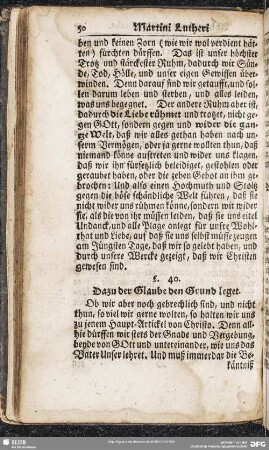 50 Martini Lutheri
ben und keinen Zorn (wie wir wol verdient hät-
ten) fürchten dürffen. Das ist unser höchster
Trotz und stärckester Ruhm, dadurch wir Sün-
de, Tod, Hölle, und unser eigen Gewissen über-
winden. Denn darauf sind wir getaufft, und sol-
len darum leben und sterben, und alles leiden,
was uns begegnet. Der andere Ruhm aber ist,
dadurch die Liebe rühmet und trotzet, nicht ge-
gen GOtt, sondern gegen und wider die gan-
tze Welt, daß wir alles gethan haben nach un-
serm Vermögen, oder ja gerne wollten thun, daß
niemand könne aufftreten und wider uns klagen,
daß wir ihn fürsetzlich beleidiget, gestohlen oder
geraubet haben, oder die zehen Gebot an ihm ge-
brochen: Und also einen Hochmuth und Stoltz
gegen die böse schändliche Welt führen, daß sie
nicht wider uns rühmen könne, sondern wir wider
sie, als die von ihr müssen leiden, daß sie eitel
Undanck, und alle Plage anlegt für unsre Wohl-
that und Liebe, auf daß sie uns selbst müsse zeugen
am Jüngsten Tage, daß wir so gelebt haben, und
durch unsere Wercke gezeigt, daß wir Christen
gewesen sind.
§. 40.
Dazu der Glaube den Grund leget.
Ob wir aber noch gebrechlich sind, und nicht
thun, so viel wir gerne wolten, so halten wir uns
zu jenem Haupt-Artickel von Christo. Denn all-
hie dürffen wir stets der Gnade und Vergebung,
beyde von GOtt und untereinander, wie uns das
Vater Unser lehret. Und muß immerdar die Be-
käntniß
SLUB
DFG